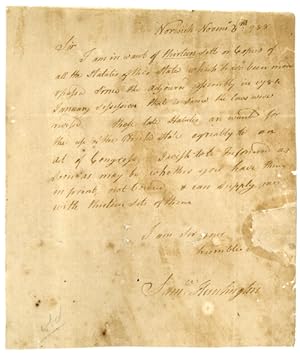 Norwich Novemr 8th 1788
Sir
I am in want of thirteen Setts or Copies of
all the Statutes of this State which have been
passed Since the adjourn
January Session that is since the laws were
revised Those late Statutes are wanted for
the use of the United State agreable to an
act of Congress I wish to be informed as
Soon as may be whether you have them
in print, and can supply me
with thirteen Sets of them
I am Sir your
humble
Saml Huntington